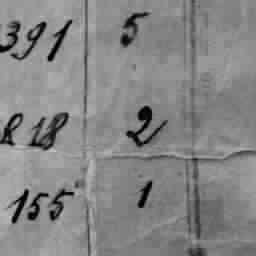 391 5
218 2
155 1